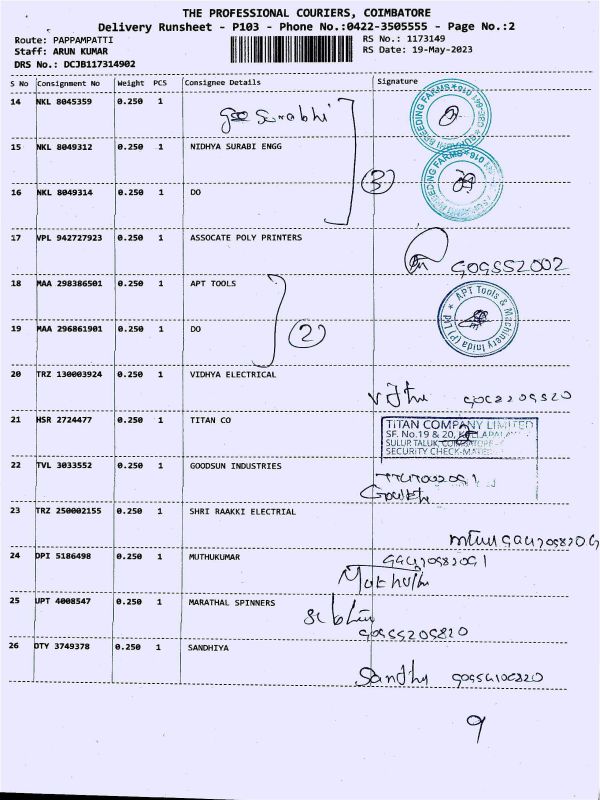 THE PROFESSIONAL COURIERS, COIMBATORE
Delivery Runsheet - P103 - Phone No.:0422-3505555 - Page No.:2
Route: PAPPAMPATTI RS No.: 1173149
Staff: ARUN KUMAR RS Date: 19-May-2023
DRS No.: DCJB117314902
S No Consignment No Weight PCS Consignee Details Signature
14 NKL 8045359 0.250 1 Surabhi
15 NKL 8049312 0.250 1 NIDHYA SURABI ENGG
BREEDING FARMS
16 NKL 8049314 0.250 1 DO
3
17 VPL 942727923 0.250 1 ASSOCATE POLY PRINTERS
909552002
18 MAA 298386501 0.250 1 APT TOOLS
APT Tools & Machinery Inida (P) Ltd
19 MAA 296861901 0.250 1 DO
2
20 TRZ 130003924 0.250 1 VIDHYA ELECTRICAL
21 HSR 2724477 0.250 1 TITAN CO
TITAN COMPANY LIMITED
SF. No.19 & 20,
SULUR TALUK,
SECURITY CHECK
22 TVL 3033552 0.250 1 GOODSUN INDUSTRIES
23 TRZ 250002155 0.250 1 SHRI RAAKKI ELECTRIAL
24 DPI 5186498 0.250 1 MUTHUKUMAR
25 UPT 4008547 0.250 1 MARATHAL SPINNERS
26 DTY 3749378 0.250 1 SANDHIYA
Sandhy
9